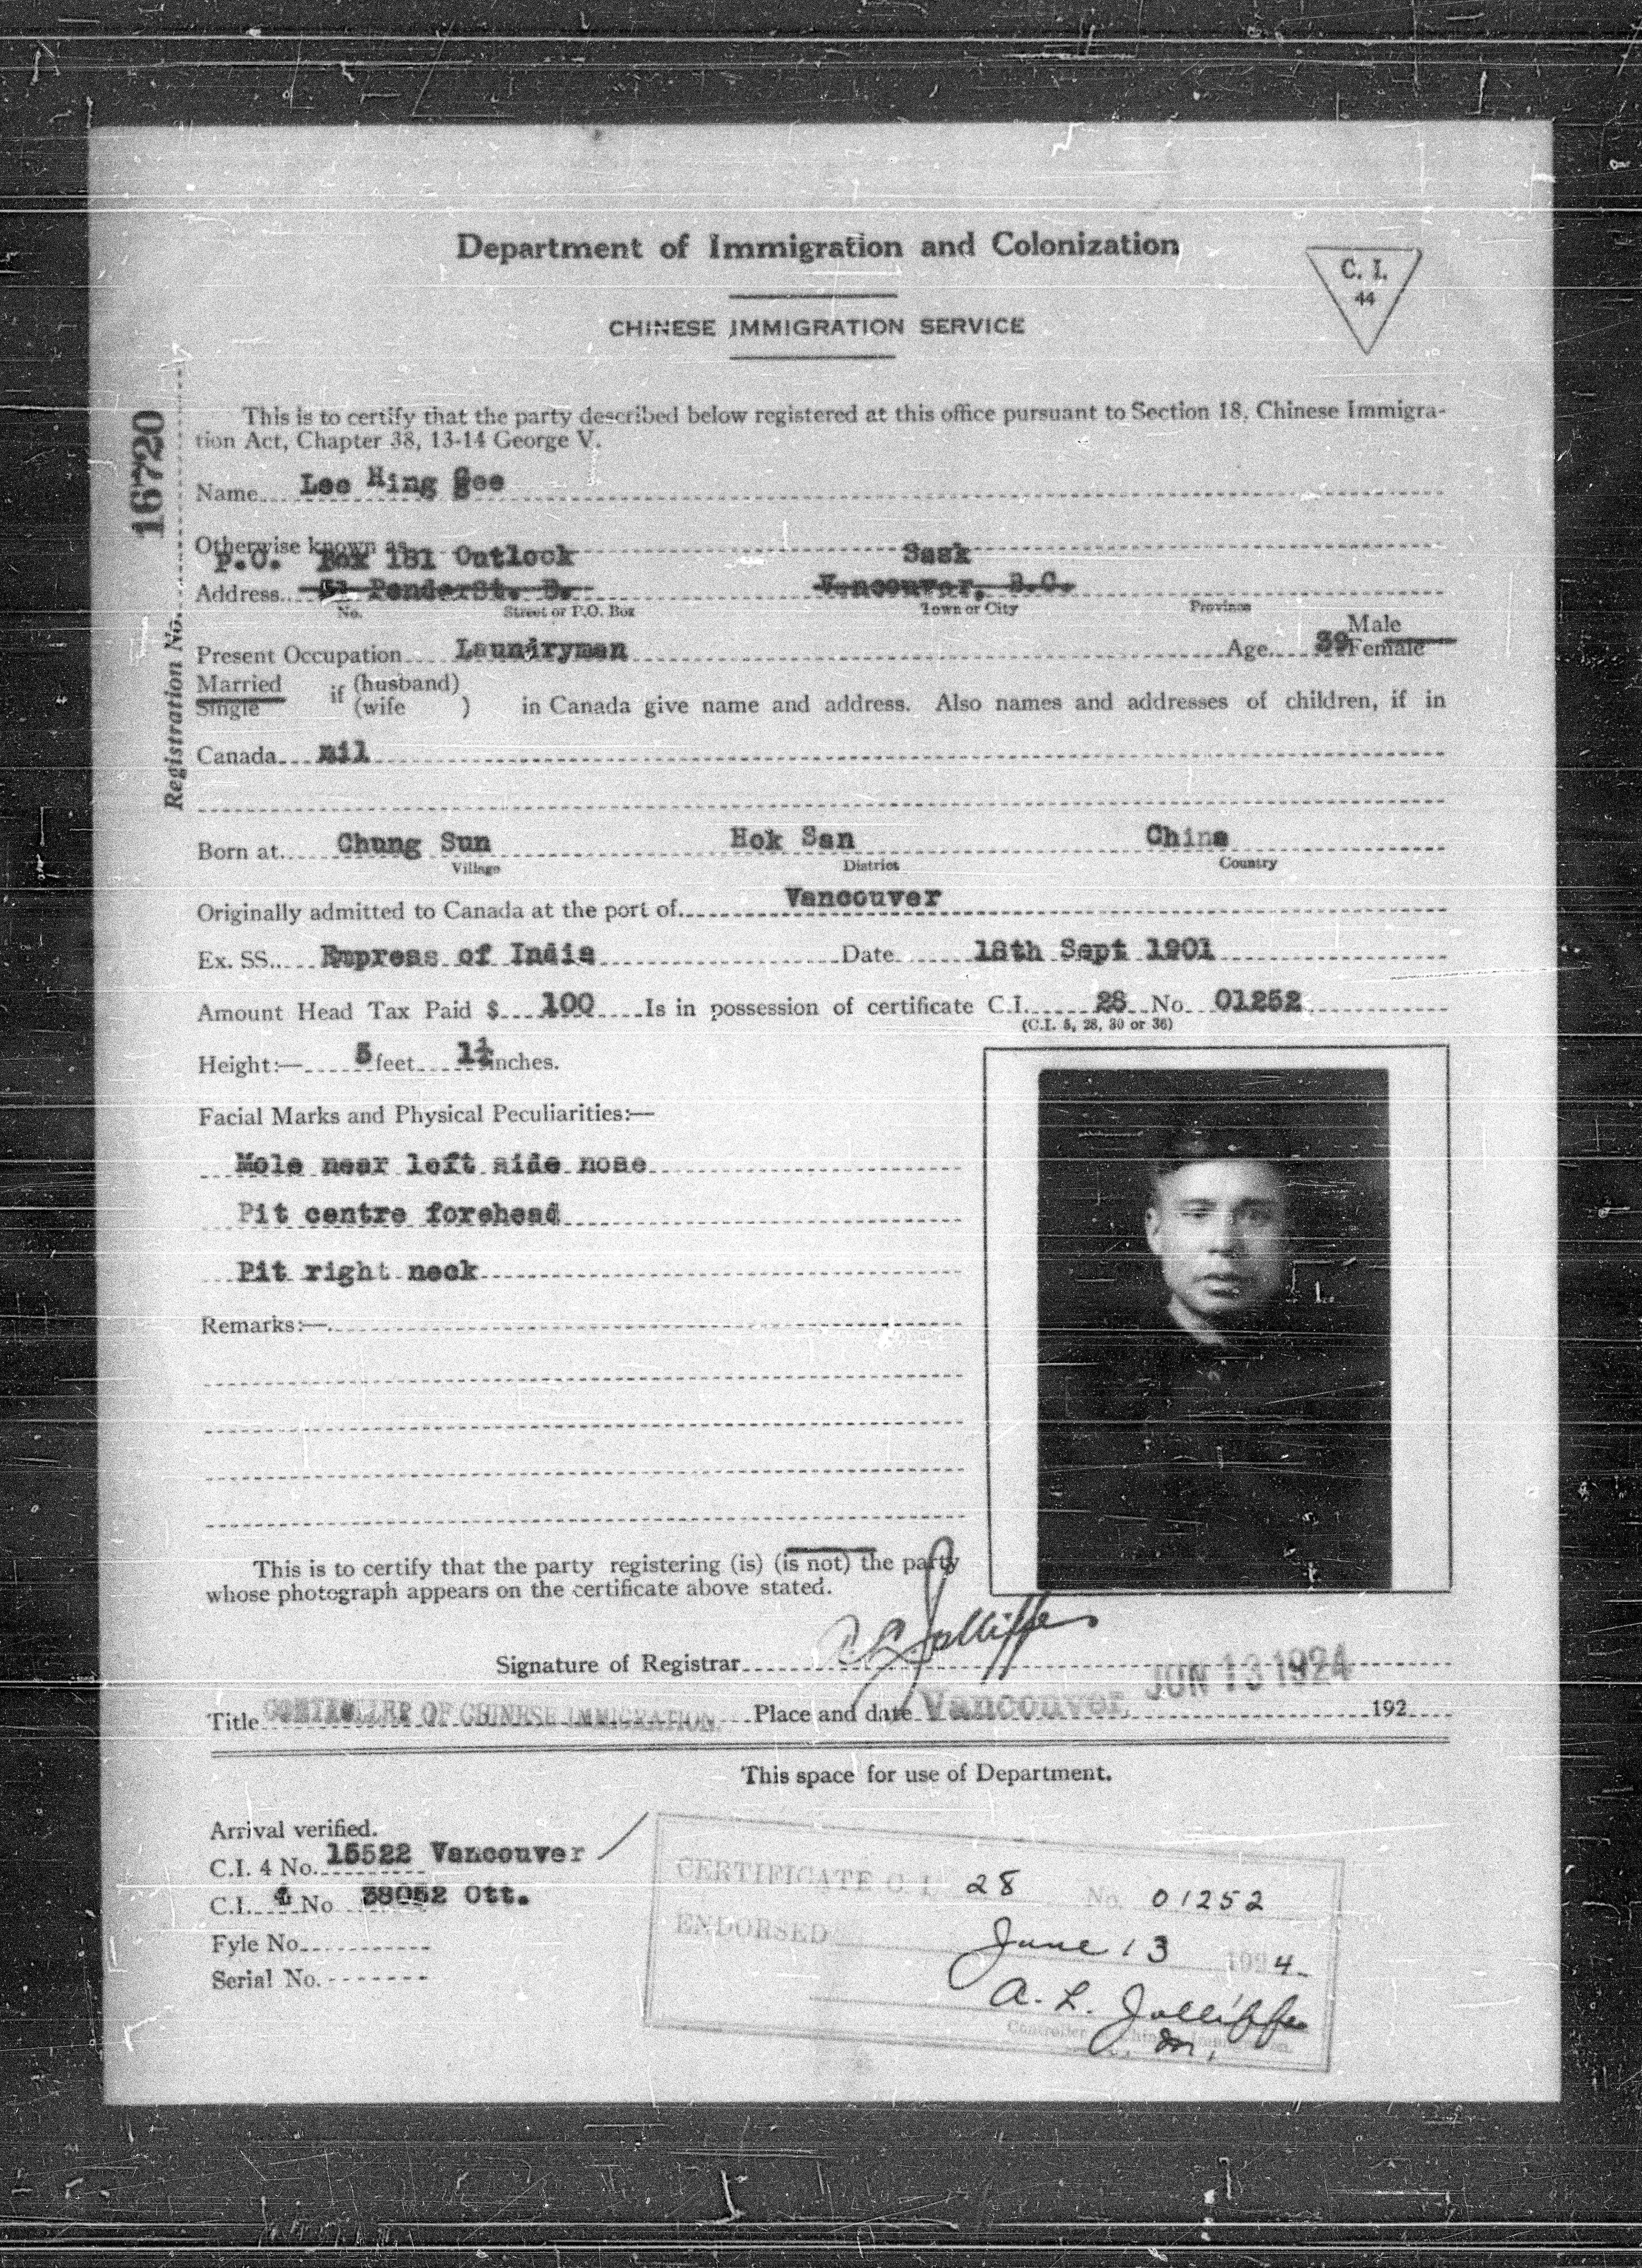 Department of Immigration and Colonization
C. I.
44
CHINESE IMMIGRATION SERVICE
Registration No. 16720
This is to certify that the party described below registered at this office pursuant to Section 18, Chinese Immigra-
tion Act, Chapter 38, 13-14 George V.
Name Lee Hing
Otherwise known as
P.O. Box 181 Outlook Sask
Address 51 Pender St. E. Vancouver, B.C.
No. Street or P.O. Box Town or City Province
Male
Present Occupation Laundryman Age 39 Female
Married if (husband)
Single (wife ) in Canada give name and address. Also names and addresses of children, if in
Canada nil
Born at Chung Sun Hok San China
Village District Country
Originally admitted to Canada at the port of Vancouver
Ex. SS. Empress of India Date 18th Sept 1901
Amount Head Tax Paid $ 100 Is in possession of certificate C.I. 28 No. 01252
(C.I. 5, 28, 30 or 36)
Height:— 5 feet 1½ inches.
Facial Marks and Physical Peculiarities:—
Mole near left side nose
Pit centre forehead
Pit right neck
Remarks:—
This is to certify that the party registering (is) (is not) the party
whose photograph appears on the certificate above stated.
Signature of Registrar A L Jolliffe
JUN 13 1924
Title CONTROLLER OF CHINESE IMMIGRATION. Place and date Vancouver, 192
This space for use of Department.
Arrival verified.
C.I. 4 No. 15522 Vancouver
C.I. 4 No 38052 Ott.
Fyle No.
Serial No.
CERTIFICATE C I 28 No. 01252
ENDORSED June 13 1924.
A. L. Jolliffe
Controller Chinese Immigration.